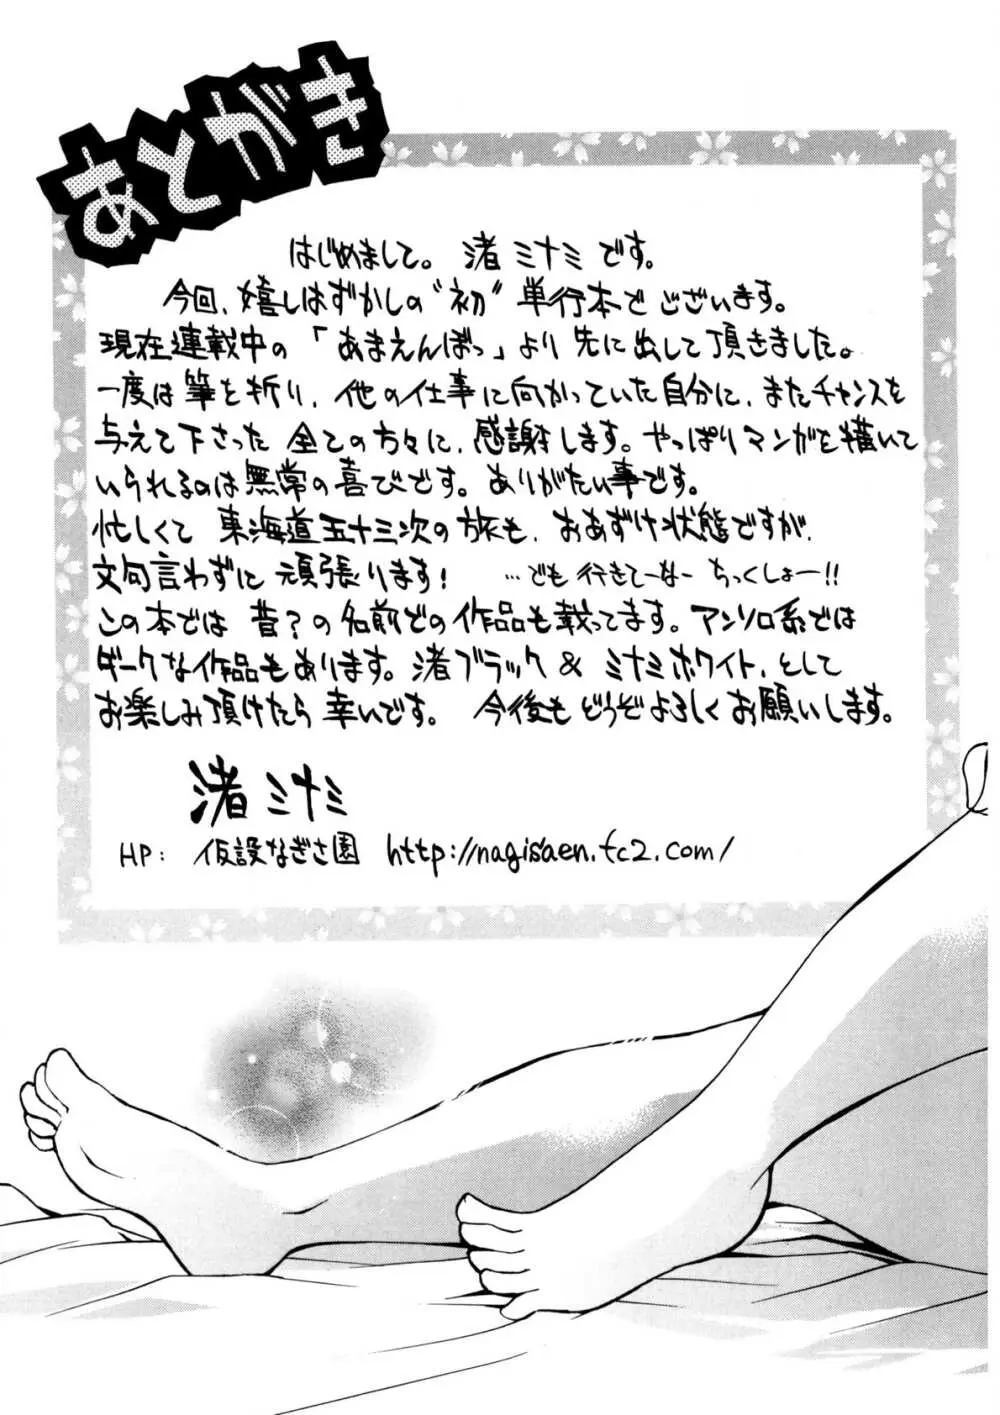 あとがき
はじめまして。渚ミナミです。
今回、嬉しはずかしの“初”単行本でございます。
現在連載中の「あまえんぼっ」より先に出して頂きました。
一度は筆を折り、他の仕事に向かっていた自分に、またチャンスを
与えて下さった全ての方々に、感謝します。やっぱりマンガを描いて
いられるのは無常の喜びです。ありがたい事です。
忙しくて東海道五十三次の旅も、おあずけ状態ですが、
文句言わずに頑張ります! …でも行きてーなー ちっくしょー!!
この本では昔?の名前での作品も載ってます。アンソロ系では
ダークな作品もあります。渚ブラック&ミナミホワイト、として
お楽しみ頂けたら幸いです。今後もどうぞよろしくお願いします。
渚ミナミ
HP: 仮設なぎさ園 http://nagisaen.fc2.com/